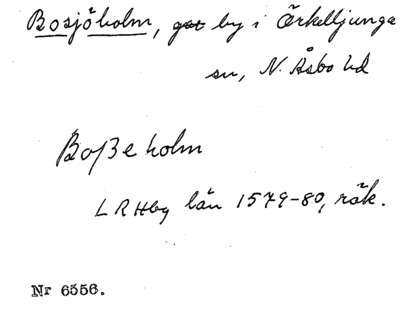 Bosjöholm, by i Örkelljunga
sn, N. Åsbo hd
Boßeholm
LRHbg län 1579-80, räk.
Nr 6556.